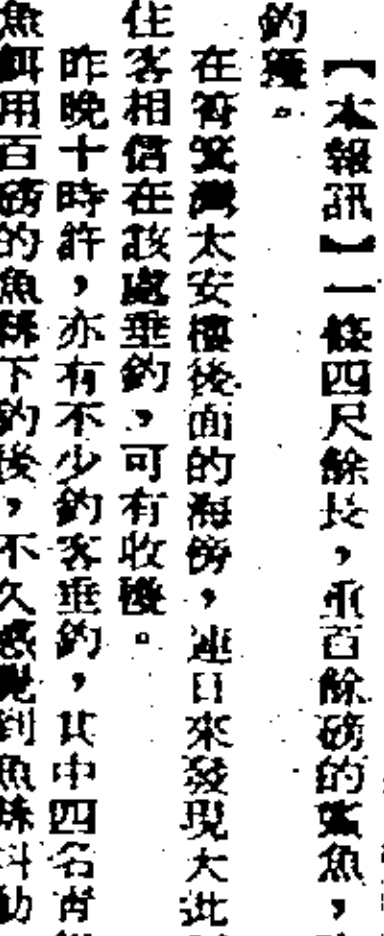 【本報訊】一條四尺餘長，重百餘磅的鯊魚，
釣獲。
在筲箕灣太安樓後面的海傍，連日來發現大批
住客相信在該處垂釣，可有收穫。
昨晚十時許，亦有不少釣客垂釣，其中四名青
魚餌用百磅的魚絲下釣後，不久感覺到魚絲抖動